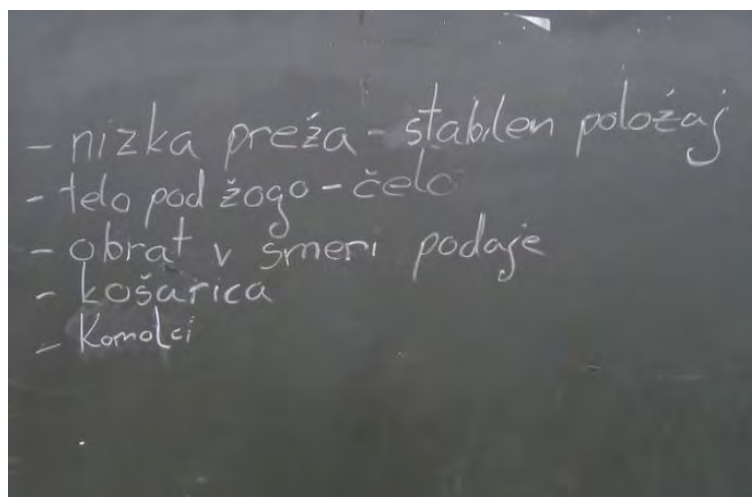 - nizka preža - stabilen položaj
- telo pod žogo - čelo
- obrat v smeri podaje
- košarica
- Komolci